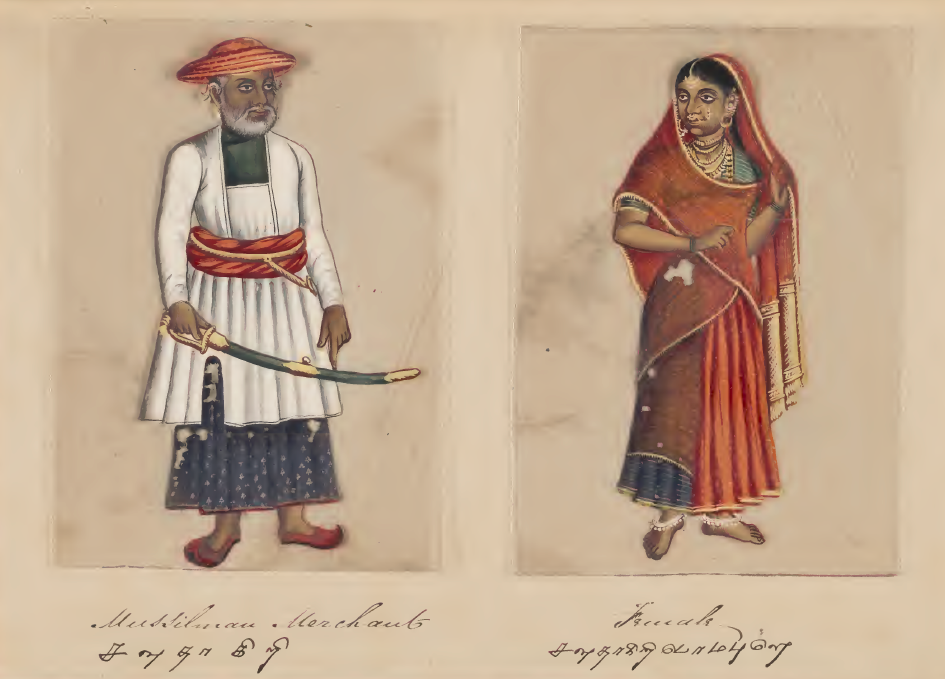 Mussilman Merchant
சவுதாகிரி
Female